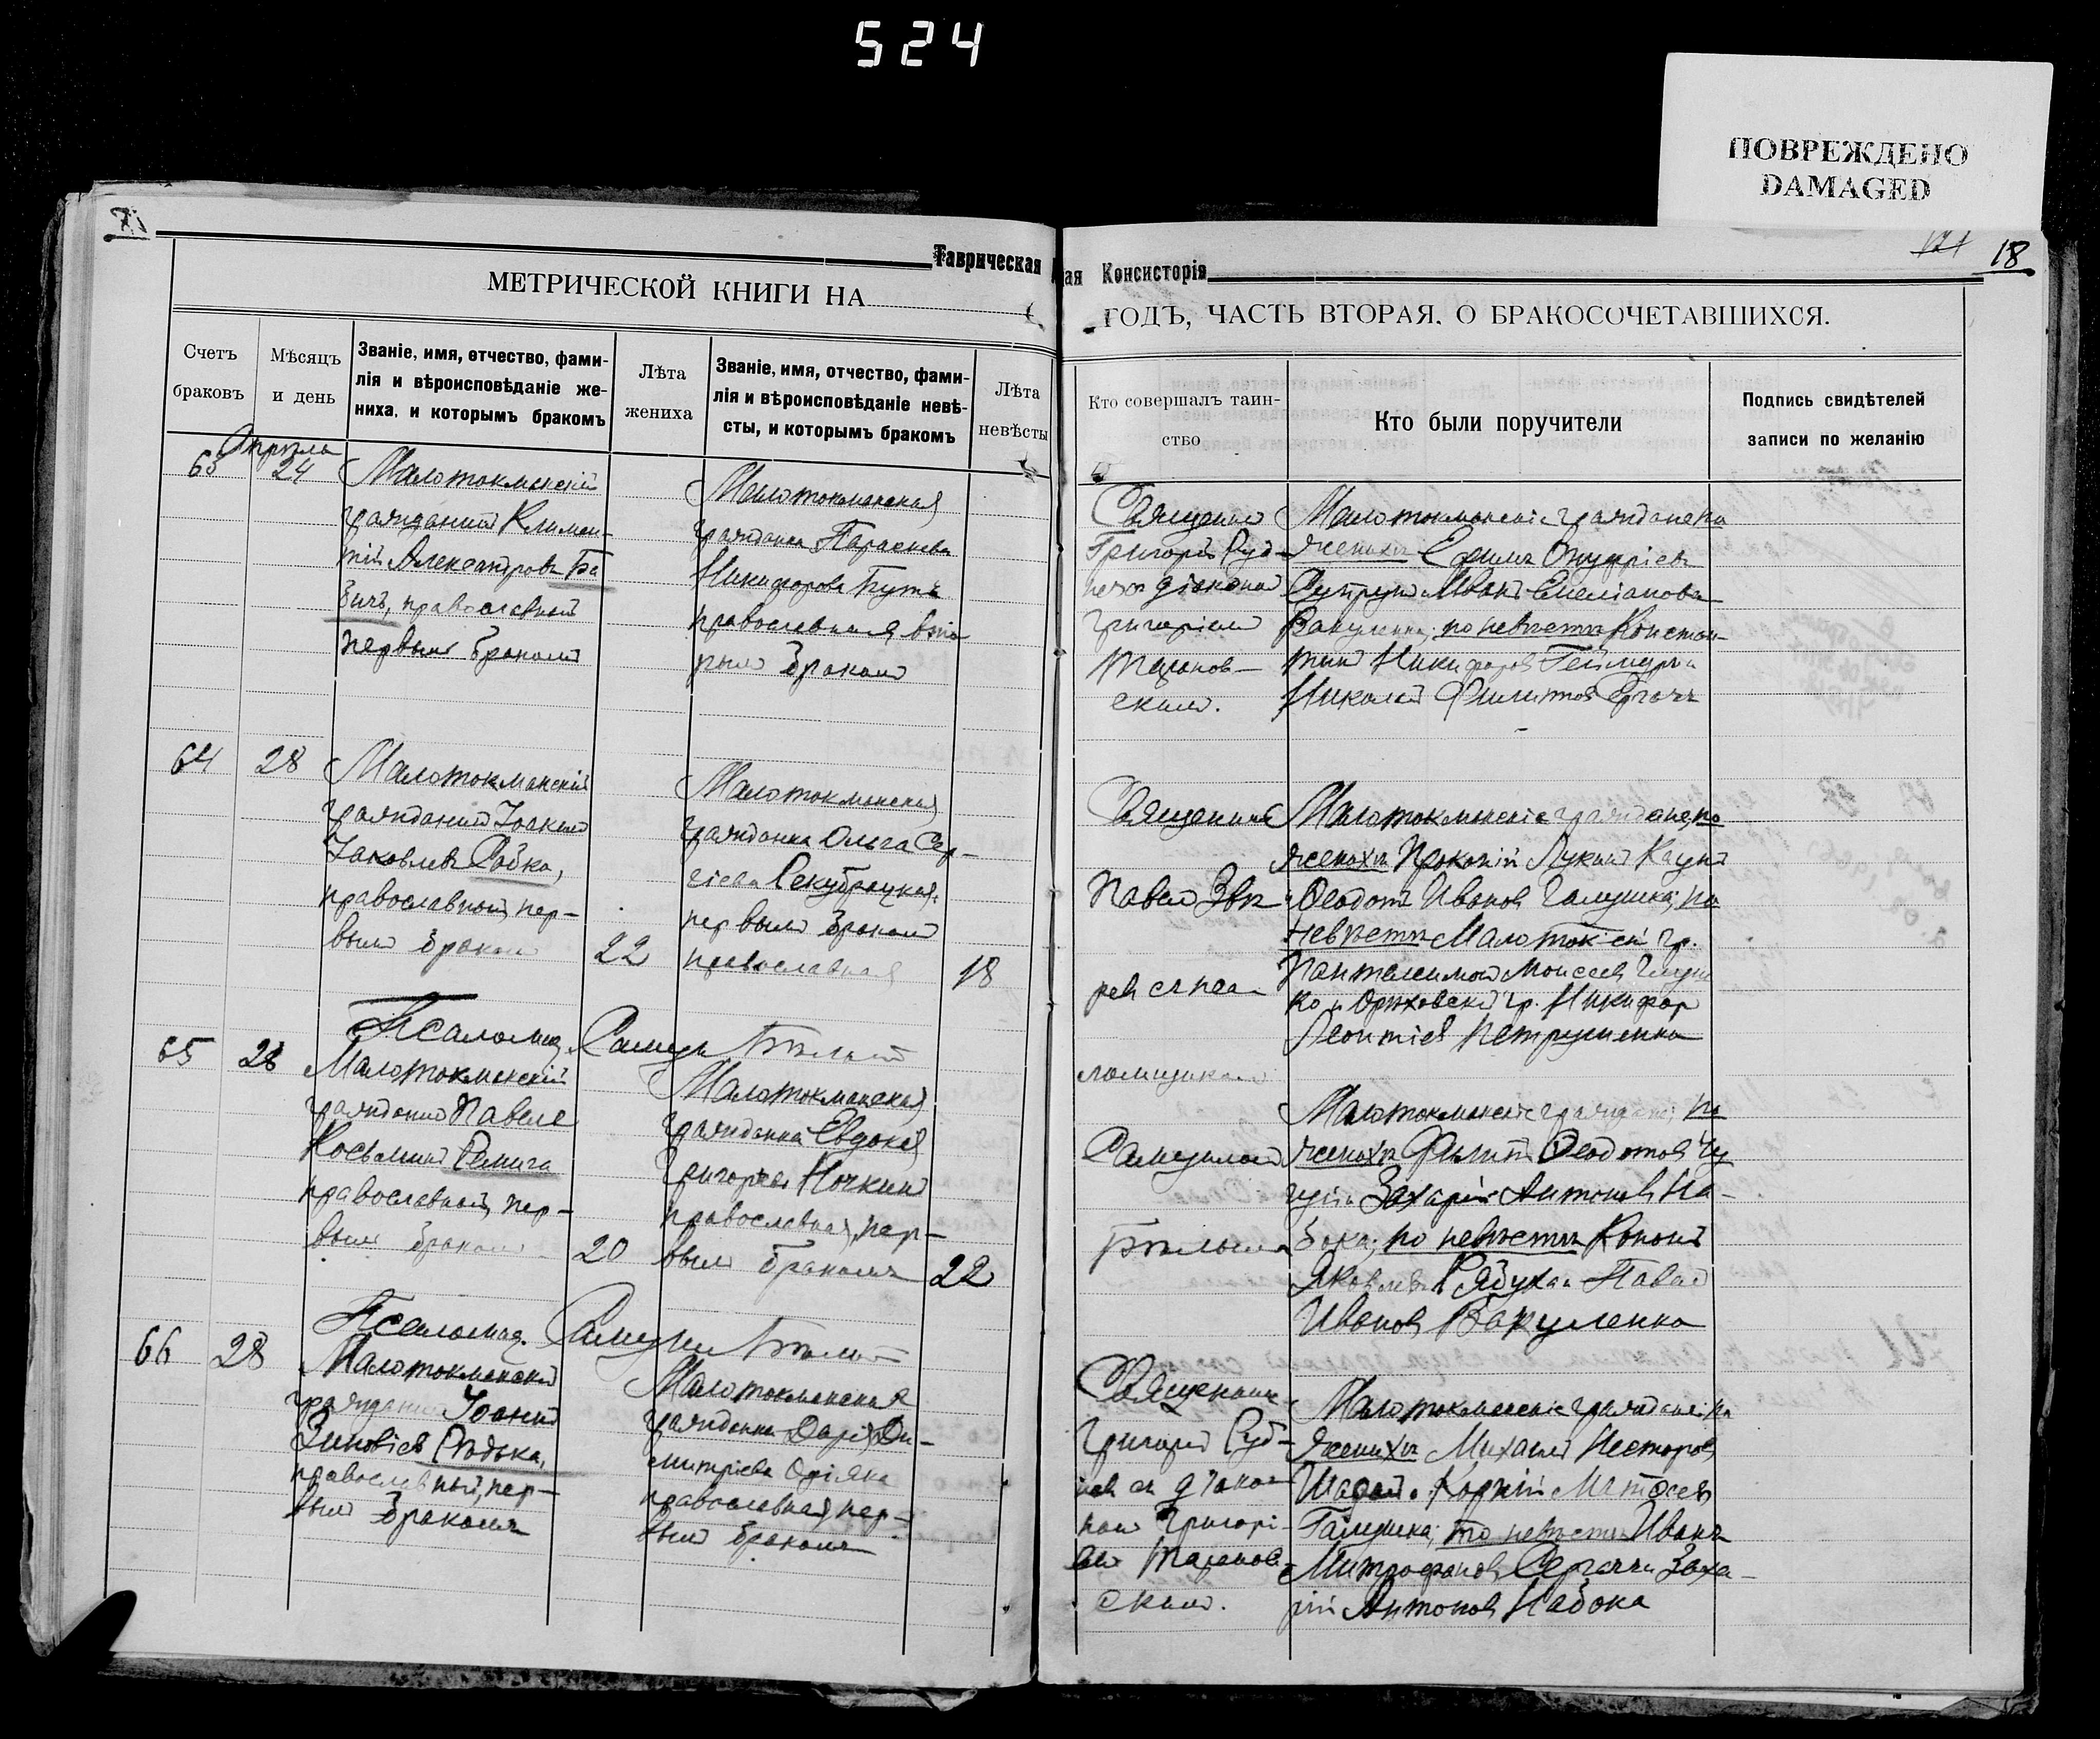 524
ПОВРЕЖДЕНО
DAMAGED
18
Таврическая
ая Консисторія
МЕТРИЧЕСКОЙ КНИГИ НА
ГОДЪ, ЧАСТЬ ВТОРАЯ, О БРАКОСОЧЕТАВШИХСЯ.
Счетъ
браковъ
Мѣсяцъ
и день
Званіе, имя, отчество, фами-
лія и вѣроисповѣданіе же-
ниха, и которымъ бракомъ
Лѣта
жениха
Званіе, имя, отчество, фами-
лія и вѣроисповѣданіе невѣ-
сты, и которымъ бракомъ
Лѣта
невѣсты
Кто совершалъ таин-
ство
Кто были поручители
Подпись свидѣтелей
записи по желанію
Апрѣля
24
Малотокмакскій
гражданинъ Климен-
тій Александровъ Ба
бичъ, православный
первымъ бракомъ
Малотокмакская
гражданка Параскева
Никифорова Бутъ
православная вто
рымъ бракомъ
Священно
Григорій Руд-
діаконом
Григоріем
Таранов-
ским.
Малотокмакскіе граждане по
женихѣ Ефимъ Онуфріевъ
Супрунъ и Иванъ Емеліановъ
Вакуленко; по невѣстѣ Констан-
тинъ Никифоровъ
Николай Филиповъ
64
28
Малотокмакскій
гражданинъ Іоакимъ
Іаковлевъ Рабко,
православный, пер-
вымъ браком
22
Малотокмакская
гражданка Ольга Сер-
гіева Скубрацкая,
первымъ бракомъ
православная
18
Священник
Павел Звѣ-
рев с псал-
ломщиком
Самуилом
Бѣлым
Малотокмакскіе граждане, по
женихѣ Прокопій Лукинъ Каунъ
и Феодотъ Иванов Галушка; по
невѣстѣ Малоток-скій гр.
Пантелеимонъ Моисеев
ко и Орѣховскій гр. Никифор
Леонтіев Петрушенко
Псаломщ. Самуил Бѣлый
65
28
Малотокмакскій
гражданинъ Павелъ
Косьминъ
православный, пер-
вымъ бракомъ
20
Малотокмакская
гражданка Евдокія
Григорьева Ночкин
православная, пер-
вымъ бракомъ
22
Малотокмакскіе граждане; по
женихѣ Филипъ Феодотовъ Чу
гуй и Захарій Антоновъ На-
бока; по невѣстѣ Кононъ
Яковлевъ Рябуха и Павел
Иванов Вакуленко
Псаломщ. Самуил Бѣлый
66
28
Малотокмакскій
гражданинъ Іоаннъ
Зиновіевъ Рѣдька,
православный, пер-
вымъ бракомъ
Малотокмакская
гражданка Дарія Ди-
митріева
православная, пер-
вымъ бракомъ
Священник
Григорій Руд-
нев съ діако-
ном Григорі-
ем Таранов-
ским.
Малотокмакскіе граждане: по
женихѣ Михаил Несторовъ
Шаран и Корній Матфеевъ
Галушка; по невѣстѣ Иванъ
Митрофановъ Сергачъ и Заха-
рій Антоновъ Набока